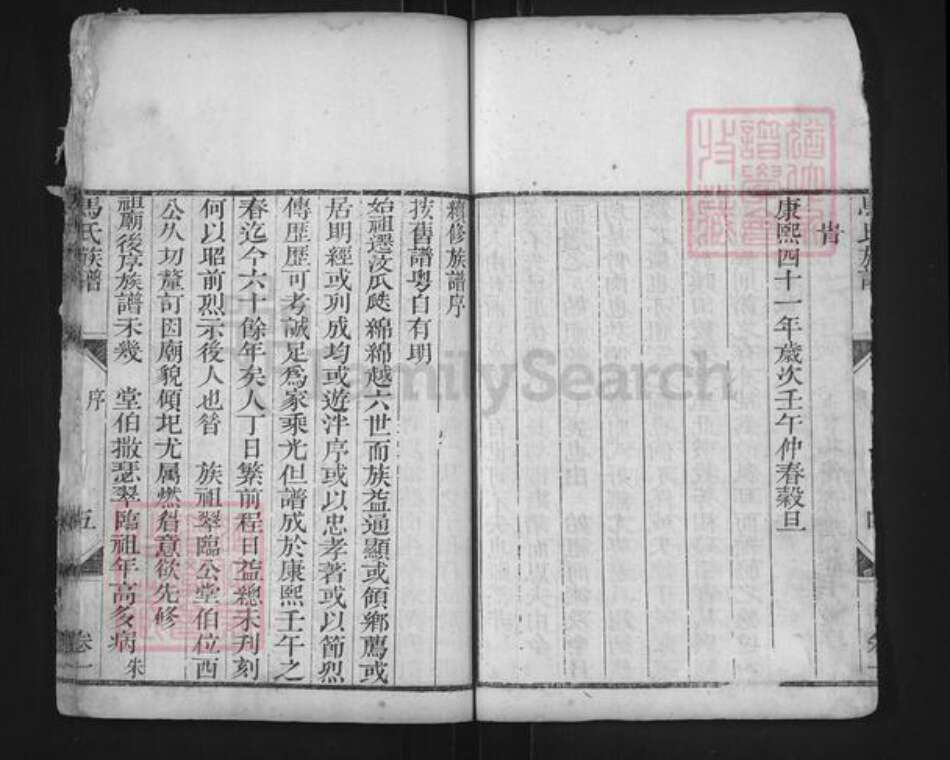 馬氏族譜
旹
康熙四十一年歲次壬午仲春穀旦
續修族譜序
按舊譜粵自有明
始祖遷汶瓜瓞綿綿越六世而族益通顯或領鄉薦或
居明經或列成均或遊泮序或以忠孝著或以節烈
傳歷歷可考誠足為家乘光但譜成於康熙壬午之
春迄今六十餘年矣人丁日繁前程日益總未刋刻
何以昭前烈示後人也昝 族祖翠臨公堂伯位西
公乆切釐訂因廟貌傾圯尤属燃眉意欲先修
祖廟後序族譜未幾 堂伯撒瑟翠臨祖年高多病
朱
馬氏族譜 序 五 卷一
FamilySearch